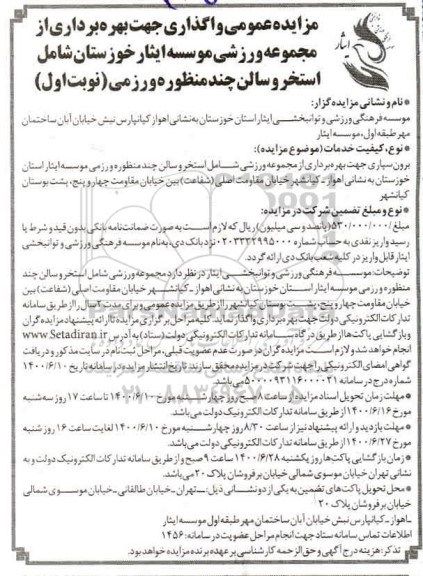 مزایده عمومی واگذاری جهت بهره برداری از
مجموعه ورزشی موسسه ایثار خوزستان شامل
استخر و سالن چند منظوره ورزمی (نوبت اول)
ایثار
* نام و نشانی مزایده گزار:
موسسه فرهنگی ورزشی و توانبخشی ایثار استان خوزستان به نشانی اهواز کیانپارس نبش خیابان آبان ساختمان
مهر طبقه اول، موسسه ایثار
* نوع، کیفیت خدمات (موضوع مزایده):
برون سپاری جهت بهره برداری از مجموعه ورزشی شامل استخر و سالن چند منظوره ورزمی موسسه ایثار استان
خوزستان به نشانی اهواز ـ کیانشهر خیابان مقاومت اصلی (شفاعت) بین خیابان مقاومت چهار و پنج، پشت بوستان
کیانشهر
* نوع و مبلغ تضمین شرکت در مزایده:
مبلغ ۵۳۰/۰۰۰/۰۰۰ (پانصد و سی میلیون) ریال که لازم است به صورت ضمانت نامه بانکی بدون قید و شرط یا
رسید واریز نقدی به حساب شماره ۰۲۰۳۳۲۲۹۹۵۰۰۰ نزد بانک دی، به نام موسسه فرهنگی ورزشی و توانبخشی
ایثار قابل واریز در کلیه شعب بانک دی ارائه گردد.
توضیحات: موسسه فرهنگی ورزشی و توانبخشی ایثار در نظر دارد مجموعه ورزشی شامل استخر و سالن چند
منظوره ورزمی موسسه ایثار استان خوزستان به نشانی اهواز ـ کیانشهر خیابان مقاومت اصلی (شفاعت) بین
خیابان مقاومت چهار و پنج، پشت بوستان کیانشهر را از طریق مزایده عمومی و برای مدت سال را از طریق سامانه
تدارکات الکترونیکی دولت جهت بهره برداری واگذار نماید. کلیه مراحل برگزاری مزایده تا ارائه پیشنهاد مزایده گران
و بازگشایی پاکت ها از طریق درگاه سامانه تدارکات الکترونیکی دولت (ستاد) به آدرس www.Setadiran.ir
انجام خواهد شد و لازم است مزایده گران در صورت عدم عضویت قبلی، مراحل ثبت نام در سایت مذکور و دریافت
گواهی امضای الکترونیکی را جهت شرکت در مزایده محقق سازند. تاریخ انتشار مزایده در سامانه تاریخ ۱۴۰۰/۶/۱۰
شماره درج در سامانه ۵۰۰۰۰۹۳۱۱۶۰۰۰۰۲۱ می باشد.
* مهلت زمان تحویل اسناد مزایده: از ساعت ۸ صبح روز چهارشنبه مورخ ۱۴۰۰/۶/۱۰ تا ساعت ۱۷ روز سه شنبه
مورخ ۱۴۰۰/۶/۱۶ از طریق سامانه تدارکات الکترونیک دولت می باشد.
* مهلت بازدید و ارائه پیشنهاد نیز از ساعت ۸/۳۰ روز چهارشنبه مورخ ۱۴۰۰/۶/۱۰ لغایت ساعت ۱۶ روز شنبه
مورخ ۱۴۰۰/۶/۲۷ از طریق سامانه تدارکات الکترونیکی دولت می باشد.
* زمان بازگشایی پاکت ها روز یکشنبه ۱۴۰۰/۶/۲۸ ساعت ۹ صبح و از طریق سامانه تدارکات الکترونیک دولت و به
نشانی تهران خیابان موسوی شمالی خیابان بر فروشان پلاک ۲۰ می باشد.
* محل تحویل پاکت های تضمین به یکی از دو نشانی ذیل: ـ تهران ـ خیابان طالقانی ـ خیابان موسوی شمالی
خیابان بر فروشان پلاک ۲۰
ـ اهواز ـ کیانپارس نبش خیابان آبان ساختمان مهر طبقه اول موسسه ایثار
اطلاعات تماس سامانه ستاد جهت انجام مراحل عضویت در سامانه: ۱۴۵۶
تذکر: هزینه درج آگهی و حق الزحمه کارشناسی بر عهده برنده مزایده خواهد بود.